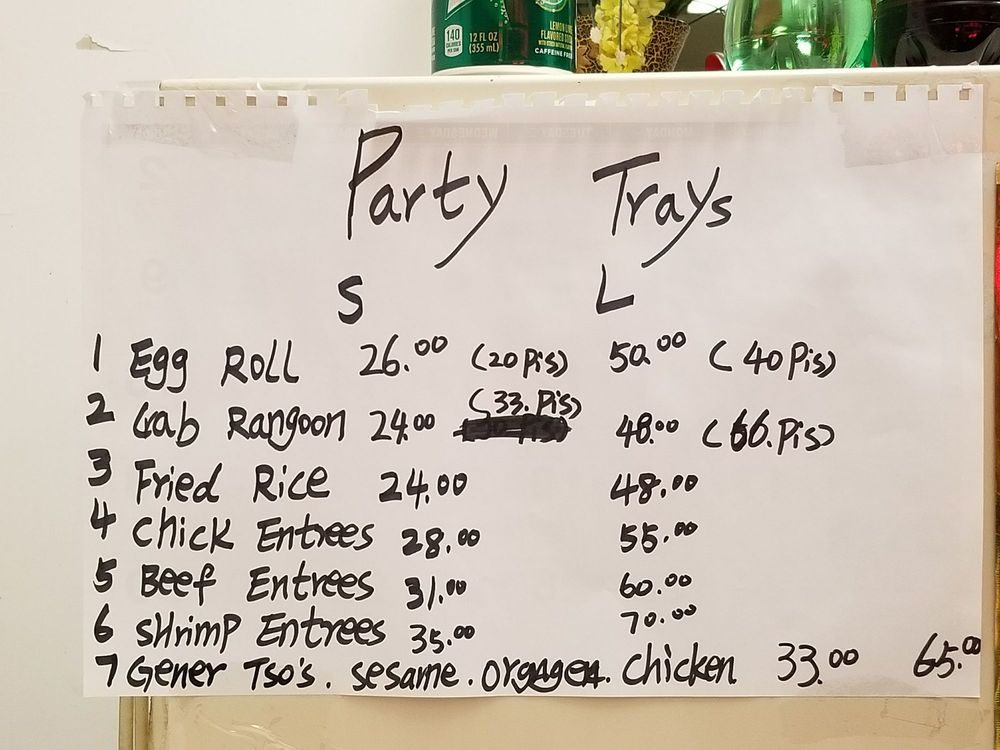 140
12 FL OZ
(355 mL)
LEMON LIME
FLAVORED SODA
CAFFEINE FREE
Party Trays
S L
1 Egg Roll 26.00 (20 Pis) 50.00 (40 Pis)
2 Crab Rangoon 24.00 (33. Pis) 48.00 (66. Pis)
3 Fried Rice 24.00 48.00
4 Chick Entrees 28.00 55.00
5 Beef Entrees 31.00 60.00
6 SHrimp Entrees 35.00 70.00
7 Gener Tso's. sesame. Orgagen. Chicken 33.00 65.00